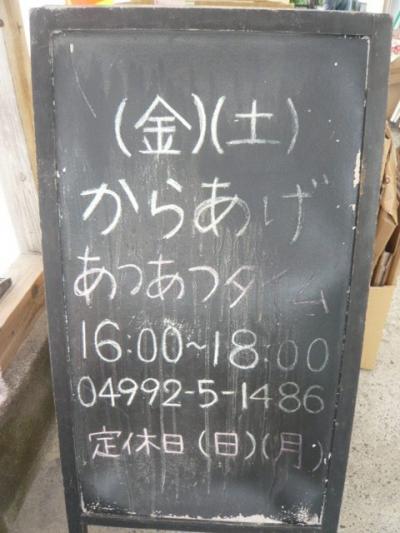 (金)(土)
からあげ
あつあつタイム
16:00~18:00
04992-5-1486
定休日(日)(月)